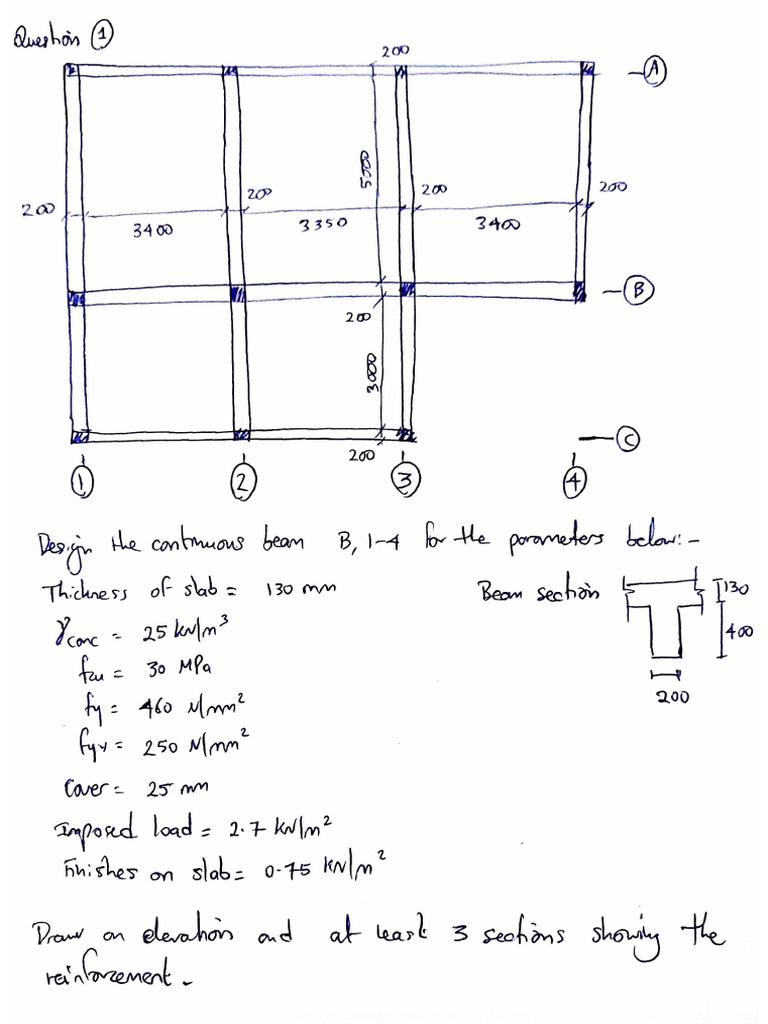 Question ①
200
A
5000
200
200
200
200
3400
3350
3400
B
200
3000
C
200
1
2
3
4
Design the continuous beam B, 1-4 for the parameters below:-
Thickness of slab = 130 mm
Beam section
130
400
200
γconc = 25 kN/m³
fcu = 30 MPa
fy = 460 N/mm²
fyv = 250 N/mm²
Cover = 25 mm
Imposed load = 2.7 kN/m²
Finishes on slab = 0.75 kN/m²
Draw an elevation and at least 3 sections showing the
reinforcement.